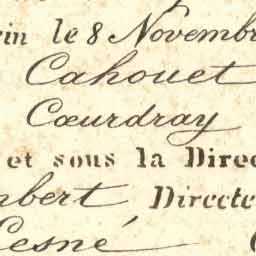 in le 8 Novembr
Cahouet
Cœurdray
et sous la Direc
mbert Directe
Lesné